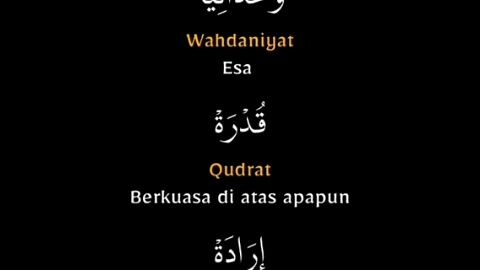 Wahdaniyat
Esa
قُدْرَةْ
Qudrat
Berkuasa di atas apapun
إِرَادَةْ